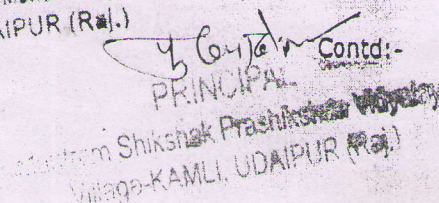 AIPUR (Raj.)
Contd:-
PRINCIPAL
Shikshak Prashikshan Vidyalay
Village-KAMLI, UDAIPUR (Raj.)